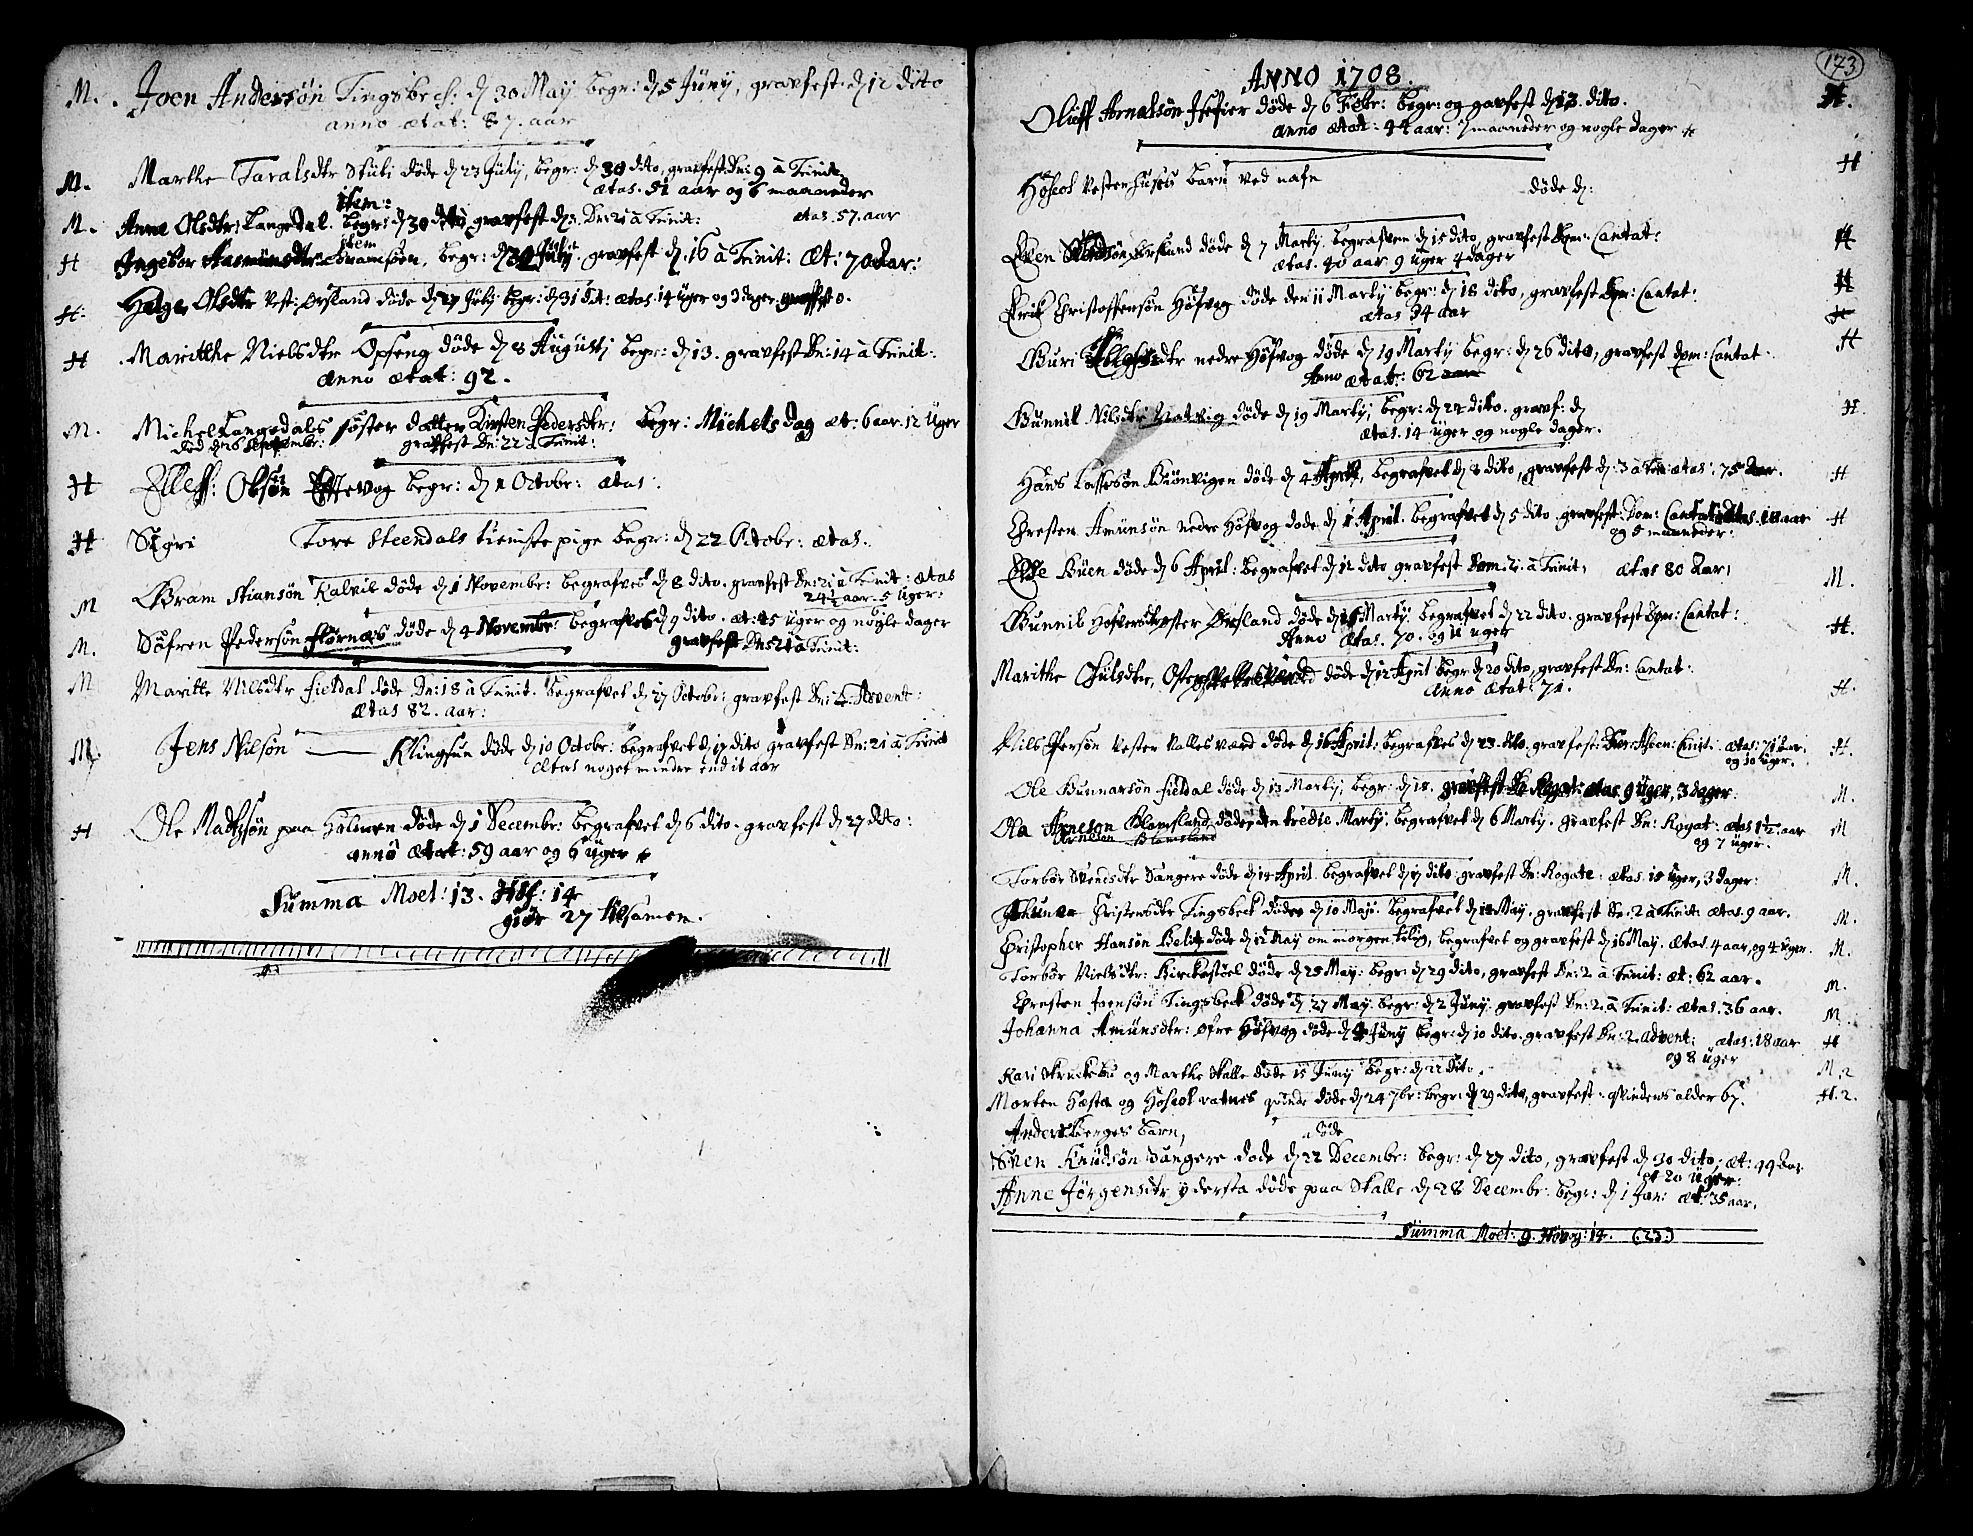 M. Joen Andersøn Tingsbech: d. 30 May begr: d. 5 Juny, gravfest d. 12 dito
anno ætat: 87. aar
M. Marthe Taralsdtr Skuli døde d. 23 July, begr: d. 30 dito, gravfest Dn: 9 à Trinit
ætas. 51 aar og 6 maaneder
item:
M. Anne Olsdtr Langedal. begr: d. 30 dito gravfest d. Dn: 21 à Trinit: ætas. 57. aar
item
H Ingebor Aasmunsdtr begr: d. July. gravfest d. 16 à Trinit: Æt: 70 aar:
H. Helge Olsdtr Vest:Ørsland døde d. 27 July begr: d. 31 dit: ætas. 14 uger og 3 dager
H Maritthe Nielsdtr Opseng døde d. 8 Augusti begr: d. 13. gravfest Dn: 14 à Trinit:
anno ætat: 92.
M. Michel Langedals søster datter Kirsten Pedersdtr: begr: Michels dag æt: 6 aar. 12 uger
død d. 26 Septembr: gravfest Dn: 22 à Trinit:
H Elleff: Olsøn begr: d. 1 Octobr: ætas:
H Sigri Tore Steendals tieniste pige begr: d. 22 Octobr: ætas.
M Gram Stiansøn Kalvil døde d. 1 Novembr: begrafves d. 8 dito. gravfest Dn: 21 à Trinit: ætas
24½ aar. 5 uger:
M. Søfren Pedersøn Flørnæs døde d. 4 Novembr: begrafves d. 9 dito. æt: 15 uger og nogle dager
gravfest Dn: 21 à Trinit:
M Maritte Nilsdtr Fieldal døde Dn: 18 à Trinit. begrafvet d. 27 Octobr: gravfest Dn: Advent:
ætas 82. aar:
M Jens Nilsøn Klingsun døde d. 10 Octobr: begrafvet d. 17 dito gravfest Dn: 21 à Trinit
ætas noget mindre end it aar
H Ole Madsøn paa Holmen døde d. 1 Decembr: begrafvet d. 6 dito. gravfest d. 27 dito:
anno ætat: 59 aar og 6 uger
Summa Moel: 13. Høf: 14
giør 27 tilsamen.
173
ANNO 1708.
Oluff Arnelsøn døde d. 6 Febr: begr: og gravfest d. 12. dito. H.
anno ætat: 44 aar: 7 maaneder og nogle dager
Høscol Vestenhuses barn ved nafn døde d: H
Even døde d. 7 Marty. begrafven d. 15 dito, gravfest Dom: Cantat: H
ætas. 40 aar 9 uger 4 dager
Eirik Christoffersøn Høfvog døde den 11 Marty begr: d. 18 dito, gravfest Dom: Cantat: H
ætas 34 aar H
Guri nedre Høfvog døde d. 19 Marty begr: d. 26 dito, gravfest Dom: Cantat: H
Anno ætat: 62 aar
Gunnil Nilsdtr Vatvig døde d. 19 Marty, begr: d. 22 dito. gravf: d H.
ætas. 14 uger og nogle dager.
Hans Lassesøn døde d. 4 April, begrafvet d. 8 dito, gravfest d. 3 à Trin: ætas. 75 aar. H
Christen Amunsøn nedre Høfvog døde d. 1 April. begrafvet d. 5 dito gravfest: Dom: Cantat ætas. 18 aar H
og 5 maaneder:
Else Buen døde d. 6 April: begrafvet d. 12 dito gravfest Dom: 2. à Trinit, ætas 80 aar, M.
Gunnil vester Ørsland døde d. 16 Marty. begrafvet d. 22 dito. gravfest Dom: Cantat: H.
Anno ætas. 70. og 11 uger
Marithe døde d. 12 April begr: d. 20 dito, gravfest Dn: Cantat: H.
anno ætat: 71.
Nils Persøn vester Vallesværd døde d. 16 April: begrafves d. 23. dito. gravfest: ætas: 71 aar: H.
og 10 uger.
Ole Gunnarsøn Fieldal døde d. 13 Marty, begr: d. 18. gravfest Dn Rogat: ætas. 9 uger, 3 dager M.
Ola Arneson Glamsland, døde den tredie Marty. begrafvet d. 6 Marty. gravfest Dn: Rogat: ætas 1½. aar M
Arneson Glamsland og 7 uger.
Torbør Svendsdtr Sangere døde d. 14 April. begrafvet d. 17 dito. gravfest Dn: Rogate: ætas. 15 uger, 3 dager: M.
Christensdtr Tingsbeck døde d. 10 Maji. begrafvet d. 12 May. gravfest Dn: 2 à Trinit: ætas. 9 aar. M.
Christopher Hansøn døde d. 12 May om morgen tilig, begrafvet og gravfest d. 16 May. ætas. 4 aar, og 4 uger. M.
Torbør Nielsdtr: Birkestøel døde d. 25 May: begr: d. 29 dito, gravfest Dn: 2 à Trinit: æt: 62 aar. M.
Chresten Joensøn Tingsbeck døde d. 27 May. begr: d. 2 Juny. gravfest Dn: 2. à Trinit: ætas. 36 aar. M
Johanna Amunsdtr: øfre Høfvog døde d. 4 Juny begr: d. 10 dito. gravfest Dn: 2. Advent: ætas: 18 aar H
og 8 uger
Kari og Marthe Skalle døde 15 Juny begr: d. 22 dito. M. 2
Morten Hæsta og Høscol vatnes qvinde døde d. 24 7br: begr: d. 29 dito, gravfest. qvindens alder 67. H. 2.
Anders Berges barn, døde
Sven Knudsøn Sangere døde d. 22 Decembr: begr: d. 27 dito, gravfest d. 30 dito, æt: 44 aar
et 20 uger:
Anne Jørgensdtr ydersta døde paa Skalle d. 28 Decembr. begr: d. 1 Jan: æt: 35 aar.
Summa Moel: 9. Høvog: 14. (23.)